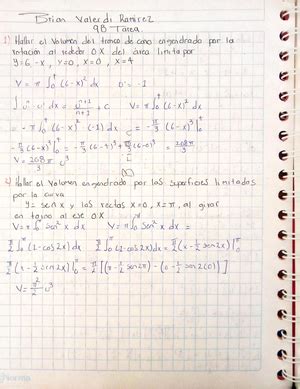 Brian Valerdi Ramirez
9B Tarea
1) Hallar el Volumen del tronco de cono engendrado por la
rotación al rededor OX del área limita por
y=6-x, y=0, x=0, x=4
V = π∫₀⁴ (6-x)² dx   u' = -1
∫ uⁿ·u' dx = uⁿ⁺¹/n+1 + C   V = π∫₀⁴ (6-x)² dx
= -π∫₀⁴ (6-x)² (-1) dx = -π/3 (6-x)³|₀⁴
-π/3 (6-x)³|₀⁴ = -π/3 (6-4)³ + π/3 (6-0)³ = 208π/3
V = 208π/3 u³
2) Hallar el Volumen engendrado por las superficies limitadas
por la curva
y = sen x y las rectas x=0, x=π, al girar
en torno al eje OX
V = π∫₀^π sen² x dx   V = π∫₀^π sen² x dx =
π/2 ∫₀^π (1-cos 2x) dx   π/2 ∫₀^π (1-cos 2x) dx = π/2 (x - 1/2 sen 2x)|₀^π
π/2 (x - 1/2 sen 2x)|₀^π = π/2 [(π - 1/2 sen 2π) - (0 - 1/2 sen 2(0))]
V = π²/2 u³